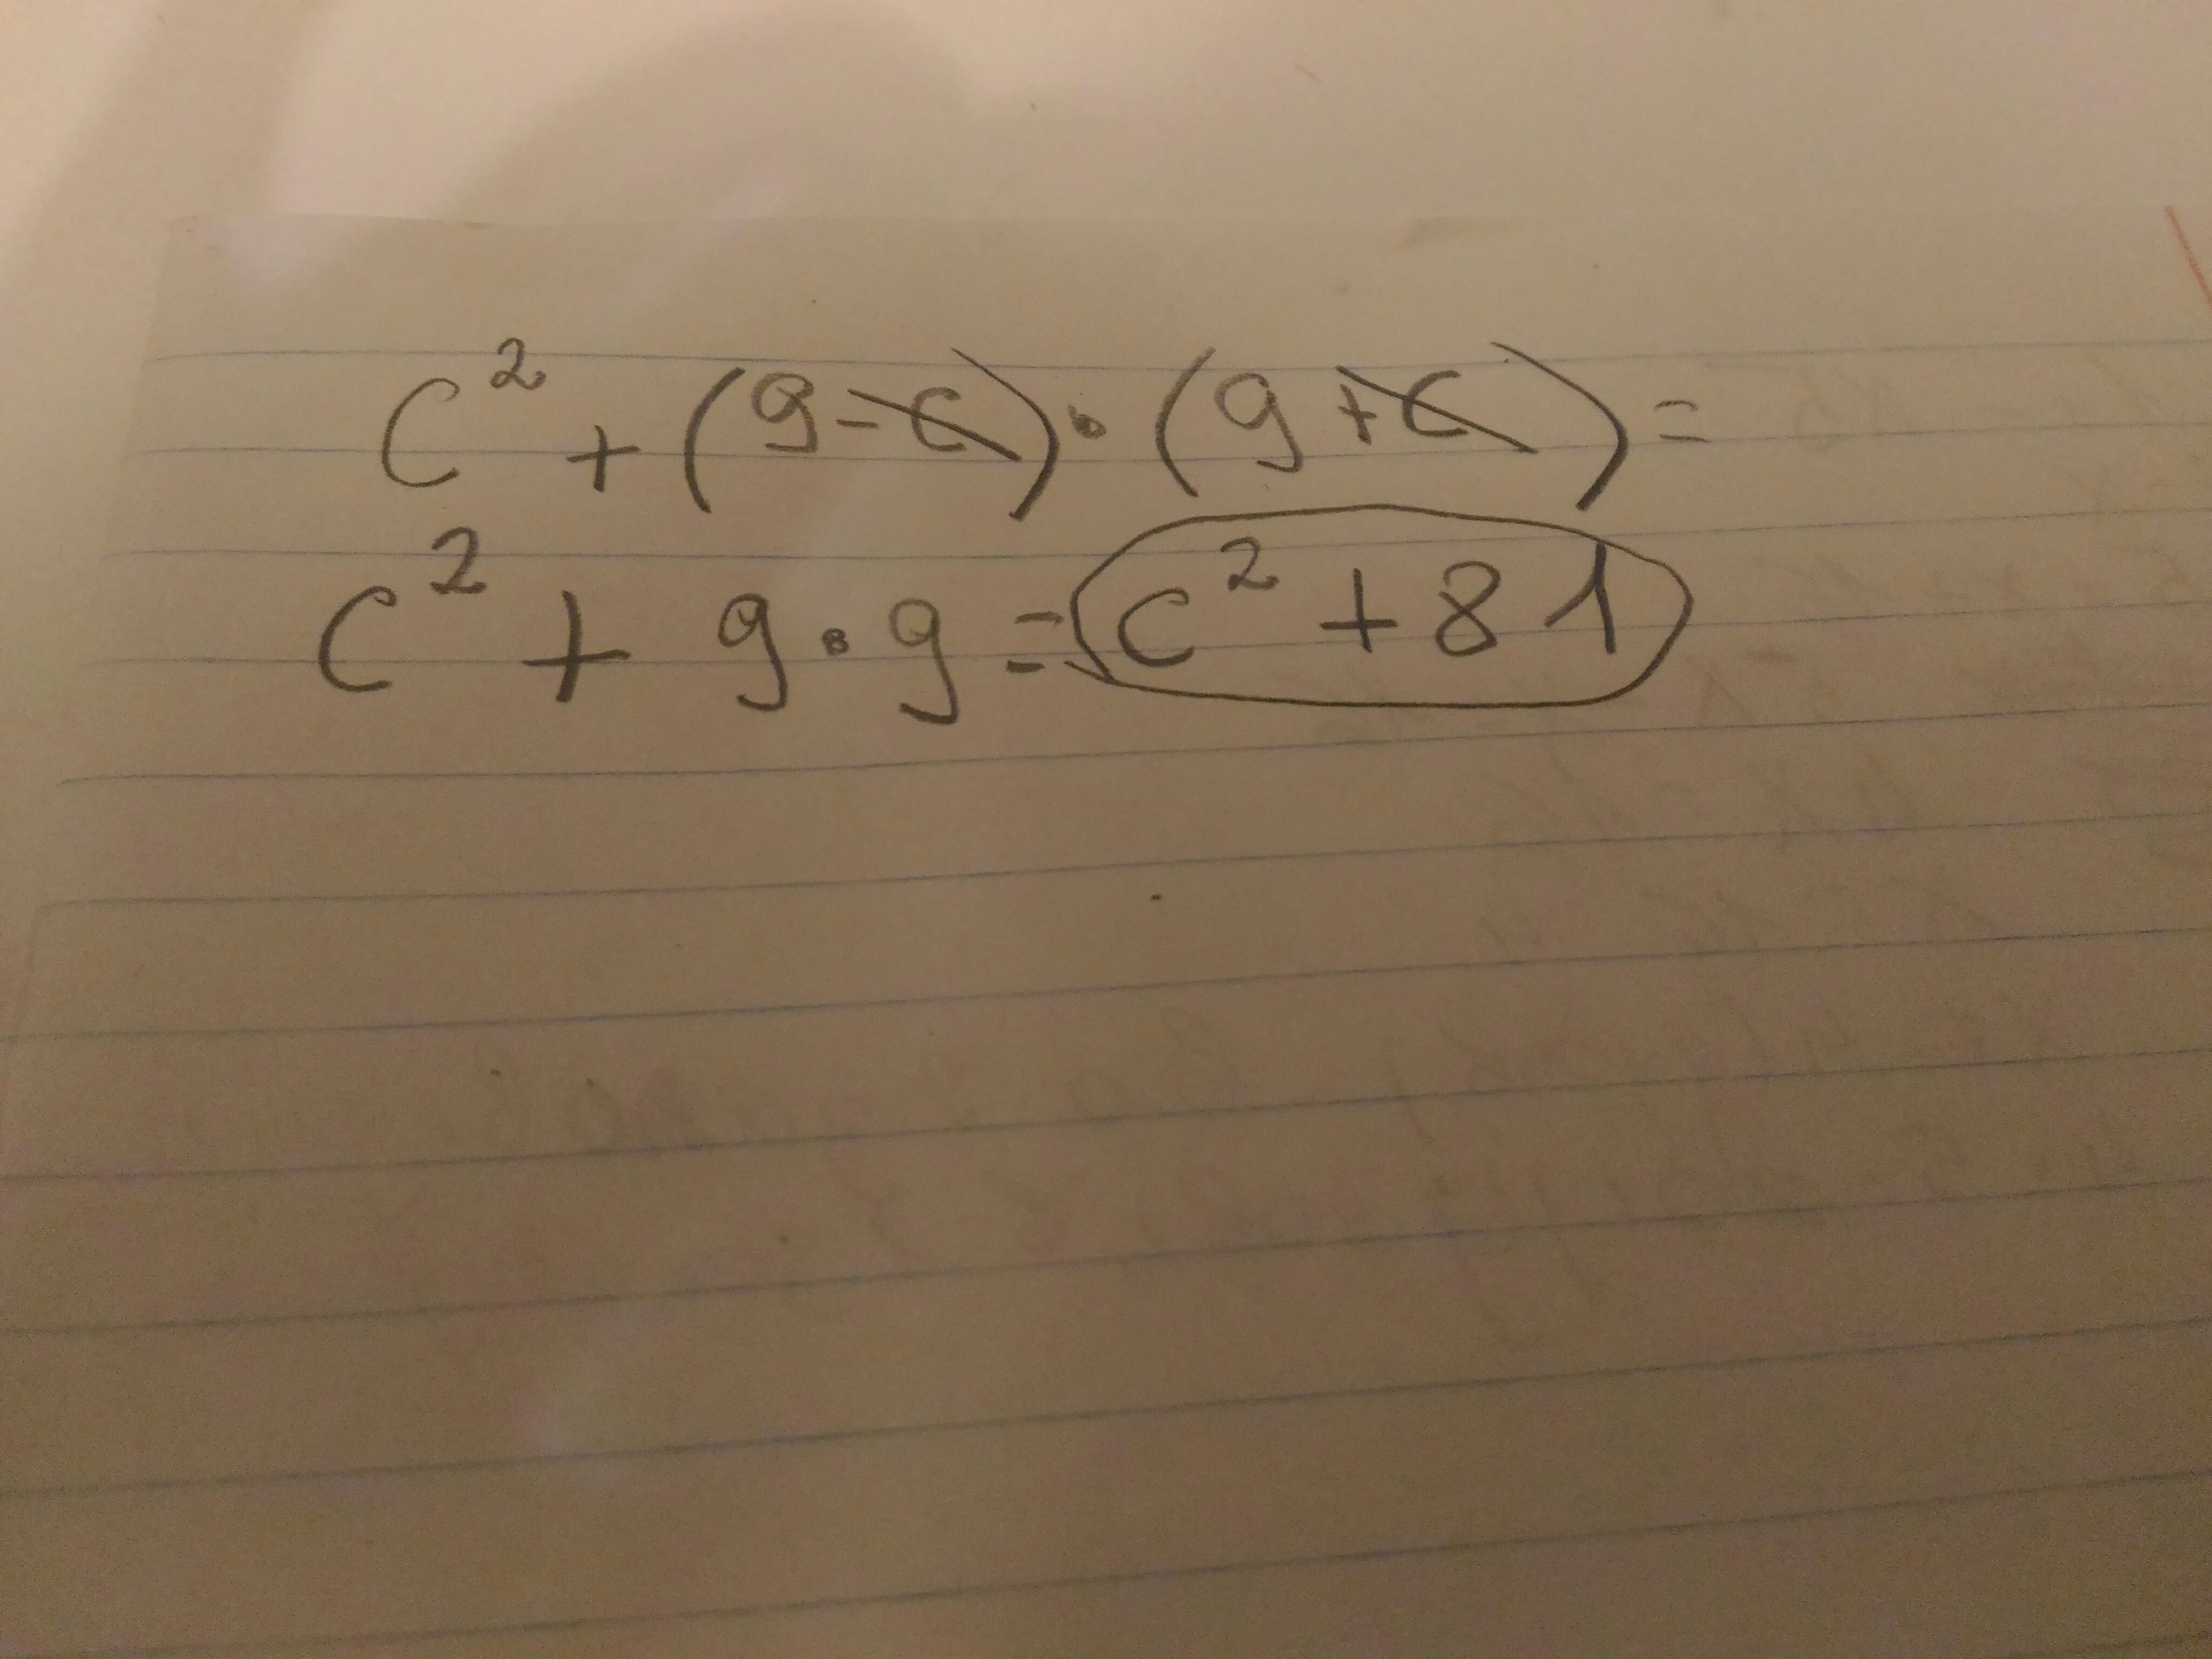 c² + (9-c)·(9+c)=
c² + 9·9=c²+81